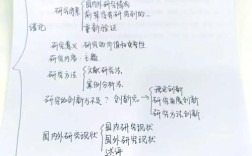 国内外研究情况
研究背景
前辈没有研究到的。
绪论
重新验证
研究意义 研究的价值和必要性
研究内容:主题
研究方法 文献研究法
案例分析法
研究的创新与不足? 创新点
理论创新
研究角度创新
研究方法创新
国内外研究现状
国内研究现状
国外研究现状
述评